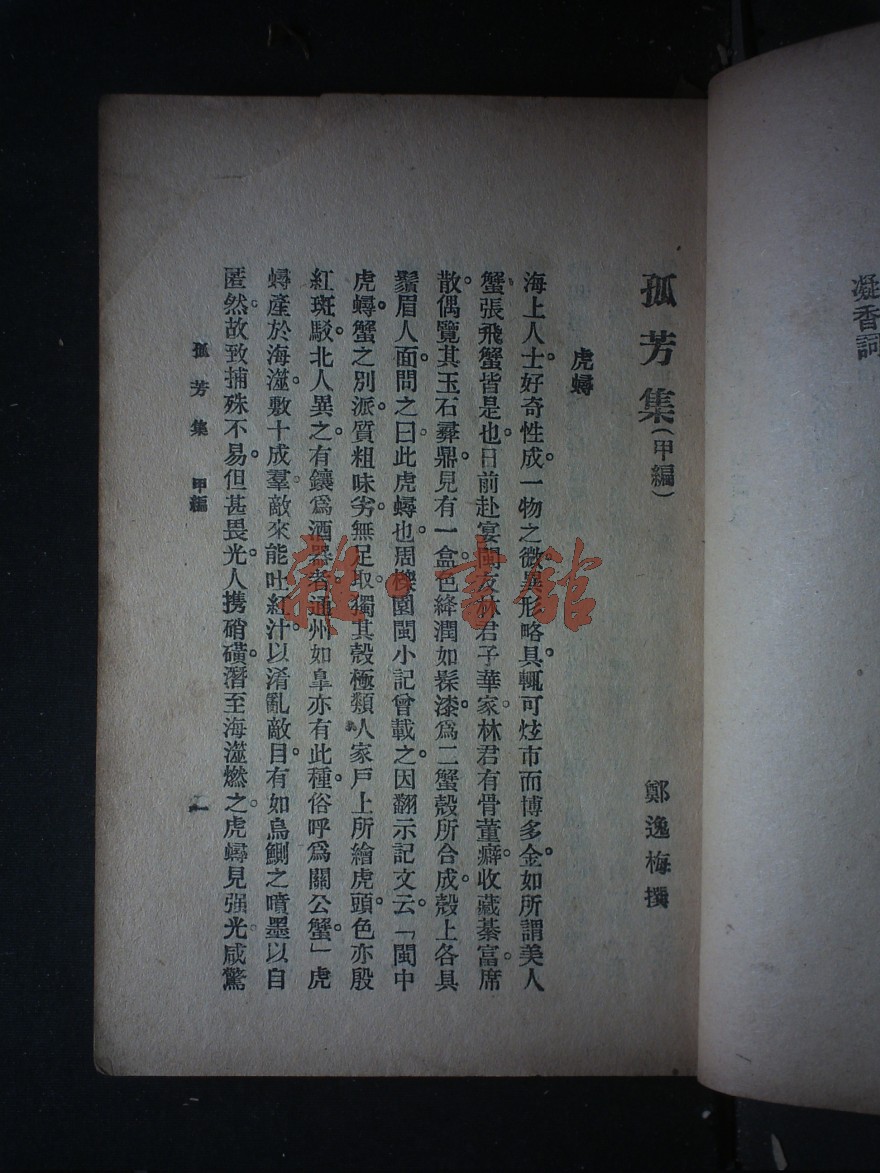 凝香詞
孤芳集(甲編)
鄭逸梅撰
虎蟳
海上人士好奇性成。一物之微。異形略具。輒可炫市而博多金。如所謂美人
蟹張飛蟹皆是也。日前赴宴閩友林君子華家。林君有骨董癖。收藏綦富。席
散。偶覽其玉石彝鼎。見有一盒。色絳潤如髹漆。爲二蟹殼所合成。殼上各具
鬚眉人面。問之。曰此虎蟳也。周櫟園閩小記曾載之。因翻示記文云。「閩中
虎蟳。蟹之別派。質粗味劣。無足取。獨其殼極類人家戶上所繪虎頭。色亦殷
紅斑駁。北人異之。有鑲爲酒器者。通州如皐亦有此種。俗呼爲關公蟹」虎
蟳產於海澨。數十成羣。敵來能吐紅汁。以淆亂敵目。有如烏鰂之噴墨以自
匿然。故致捕殊不易。但甚畏光。人携硝磺潛至海澨燃之。虎蟳見强光。咸驚
孤芳集 甲編
一
雜·書館